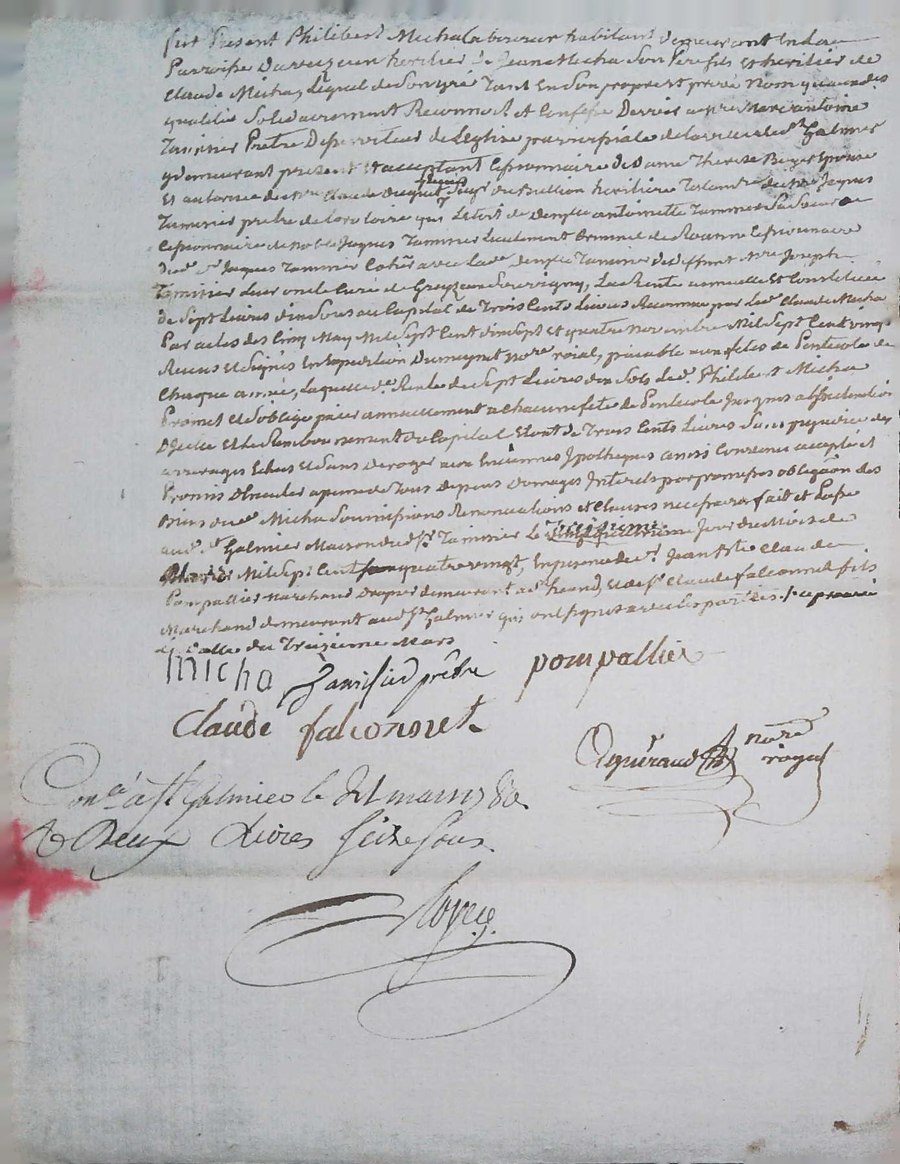 fut Présent Philibert Micha laboureur habitant demeurant en la
Parroisse d'aveyzeux heritier de Jean Micha son Pere fils et heritier de
Claude Micha, Lequel de Son gré Tant En Son propre et privé Nom qu'aux des
qualités Solidairement Reconnoit et Confesse Devoir a Mre Marc antoine
Taminier Prêtre Desserviteur de L'eglise parroissialle de la ville de St Galmier
y demeurant present Et acceptant Cessionnaire de dame Therese Epouse
Et autorisée de Claude du Bullion heritiere de Mre Jaques
Taminier pretre de loratoire qui Letoit de antoinette Taminier Sa Soeur
Cessionnaire de noble Jaques Taminier Lieutenant Criminel de Roanne Cessionnaire
dud. Sr Jaques Taminier Coher avec lad. Taminier de deffunt Mre Joseph
Taminier leur oncle Curé de Grezieu Souvigny, La Rente annuelle Et Constituée
de Sept Livres dix Sous au Capital de Trois Cents Livres Reconnue par led. Claude Micha
Par actes des Cinq May Mil Sept Cent dix Sept et quatre novembre Mil Sept Cent vingt
Reçus et Signés en Expedition Dumeynet nore roial, paiable aux fêtes de Pentecote de
Chaque année, Laquelle de. Rente de Sept Livres dix Sols led. Philibert Micha
Promet et S'oblige païer annuellement a Chacune fete de Pentecote Jusques
D'Icelle Et Le Rembourcement du Capital Etant de Trois Cents Livres Sans prejudice des
arrerages Echus et Sans Deroger aux Enciennes Ypotheques ainsi Convenu accepté et
Promis D'Executer a peine de Tous Depens Domages Interets par promesses obligaon des
Biens dud. Micha Soumissions Renonciations et Clauses necessaires fait et Passé
aud. St Galmier Maison dud. Sr Taminier Le treizieme Jour du Mois de
Mars Mil Sept Cent quatre vingt, En presence de Sr Jean Bte Claude
Pompallier Marchand Drapier demeurant et de Sr Claude falconnet fils
Marchand demeurant aud. St Galmier qui ont signé avec les parties.
Treizieme Mars
Micha Taminier prêtre pompallier
Claude falconnet
nore royal
Con.é à St Galmier le 21 mars 1780
R Deux Livres seize sous.